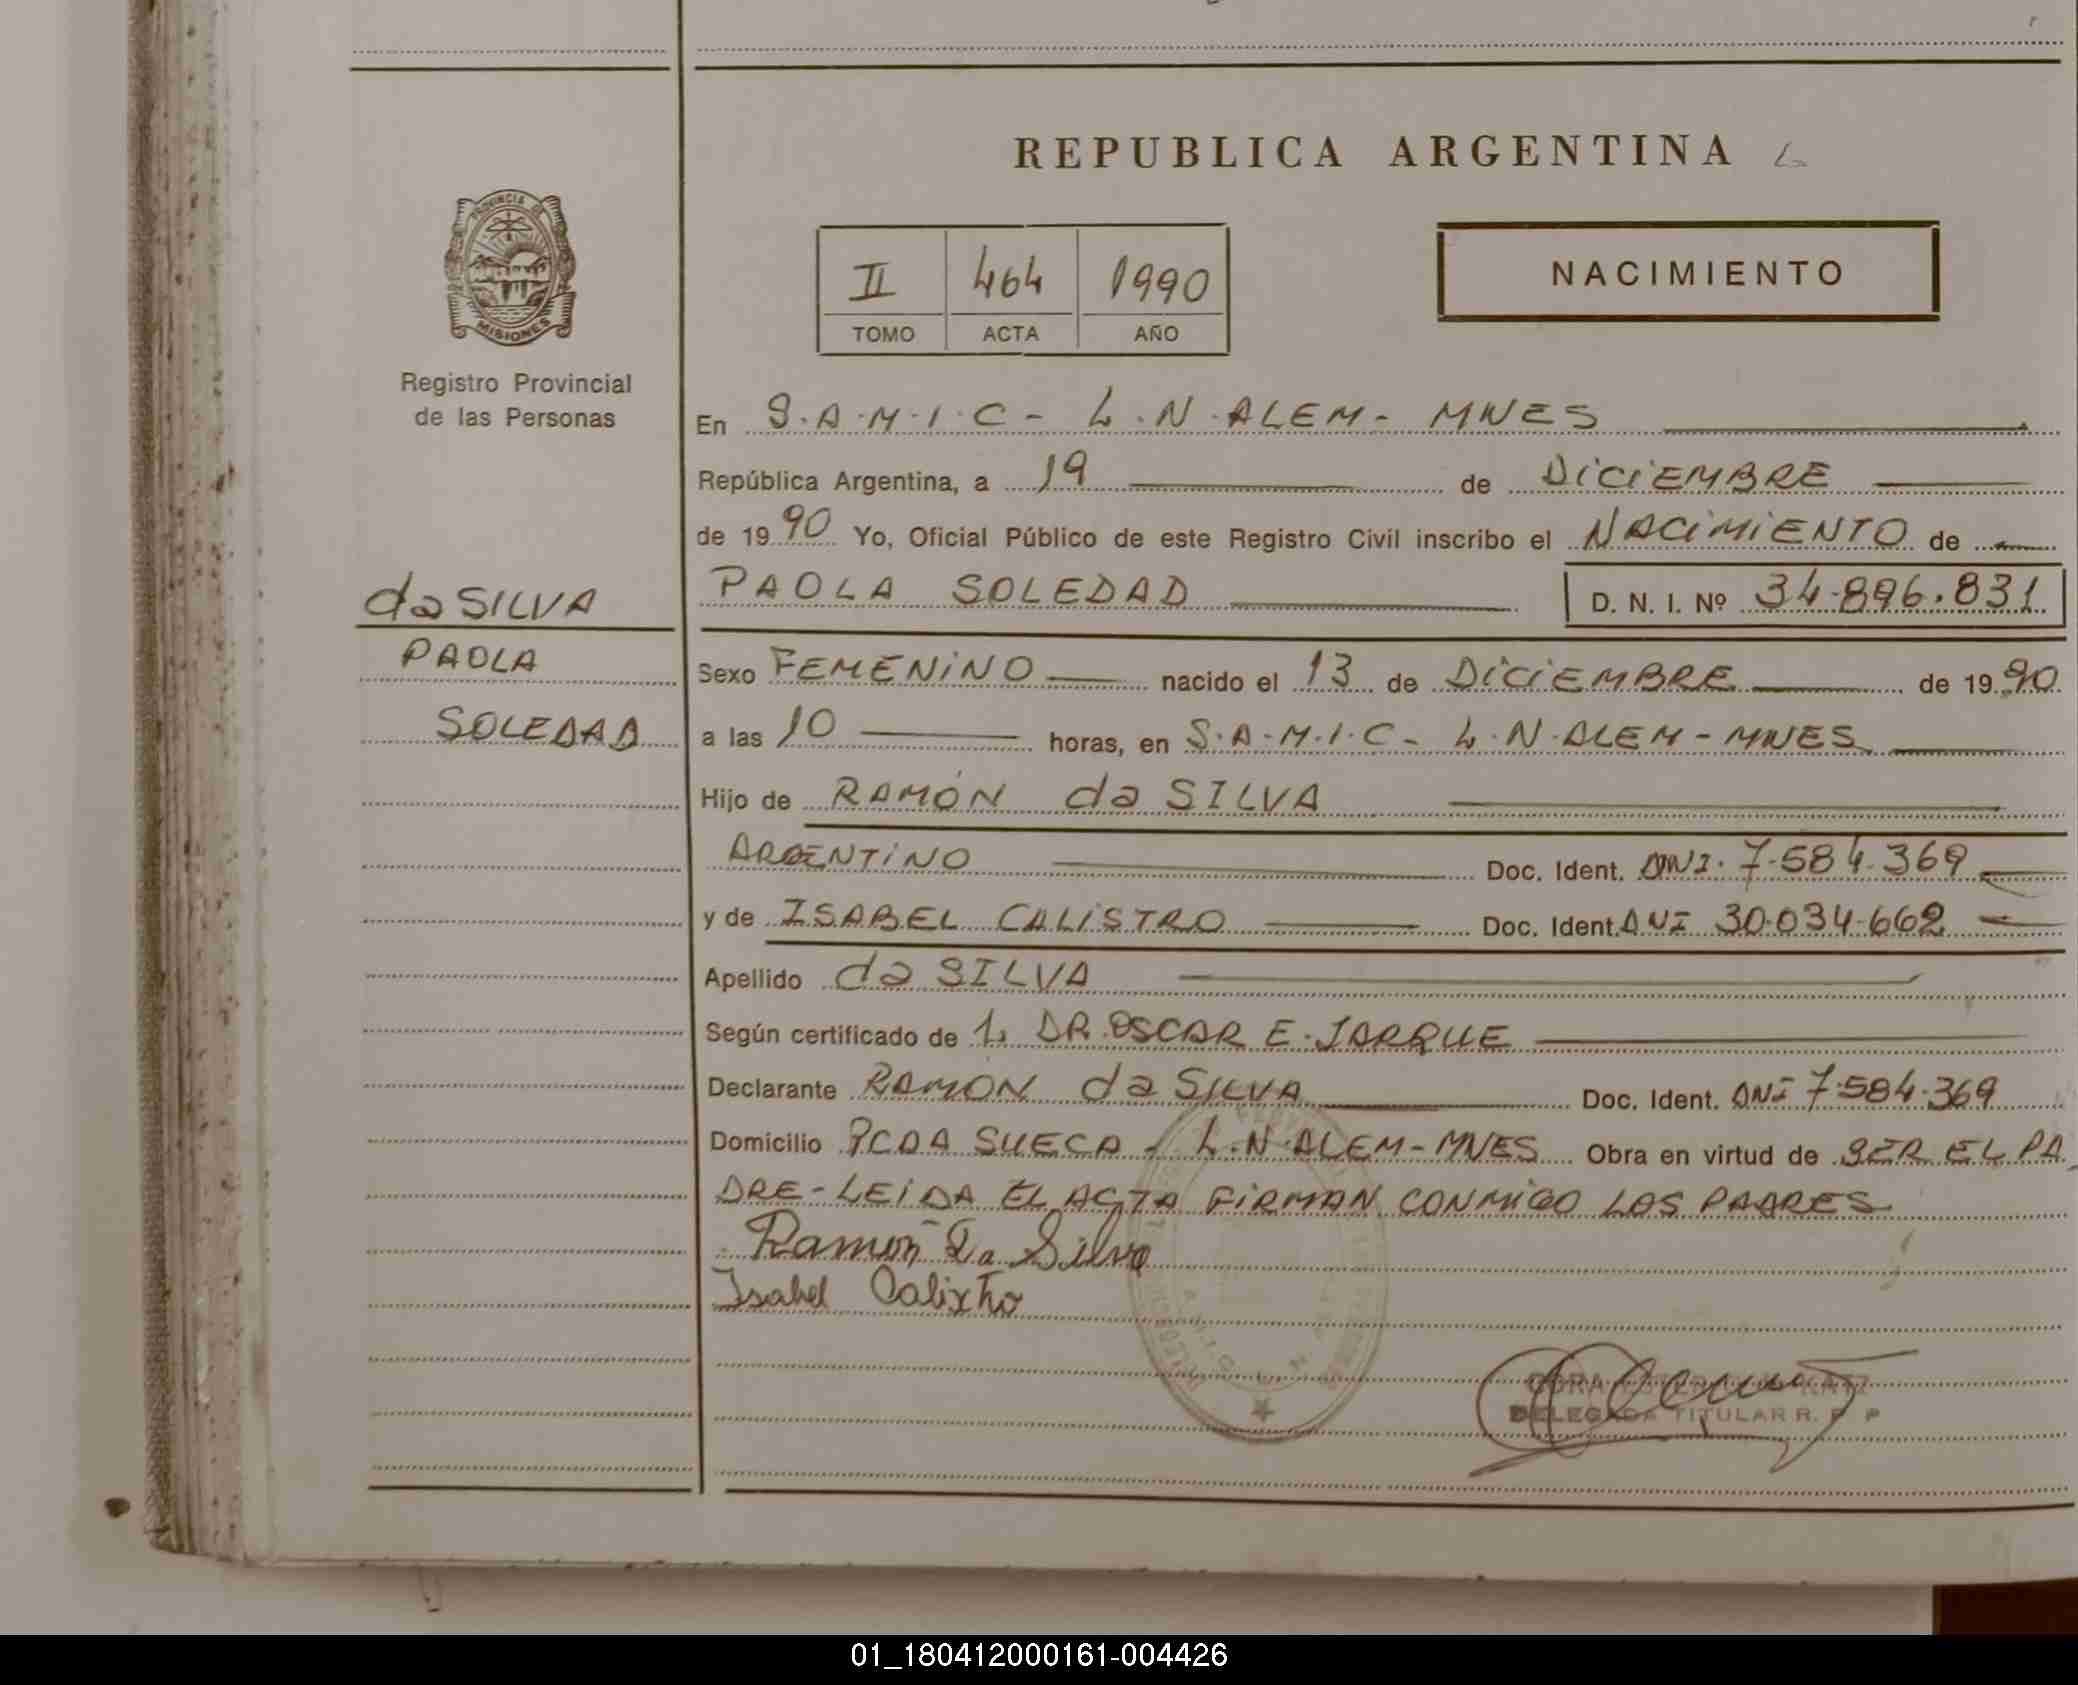 REPUBLICA ARGENTINA
PROVINCIA DE
MISIONES
Registro Provincial
de las Personas
II 464 1990
TOMO ACTA AÑO
NACIMIENTO
En S.A.M.I.C - L.N.ALEM - MNES
República Argentina, a 19 de DICIEMBRE
de 1990 Yo, Oficial Público de este Registro Civil inscribo el NACIMIENTO de
PAOLA SOLEDAD D. N. I. Nº 34.896.831
da SILVA
PAOLA
SOLEDAD
Sexo FEMENINO nacido el 13 de DICIEMBRE de 1990
a las 10 horas, en S.A.M.I.C - L.N.ALEM - MNES
Hijo de RAMÓN da SILVA
ARGENTINO Doc. Ident. DNI. 7.584.369
y de ISABEL CALISTRO Doc. Ident. DNI 30.034.662
Apellido da SILVA
Según certificado de L DR. OSCAR E. JARQUE
Declarante RAMON da SILVA Doc. Ident. DNI 7.584.369
Domicilio PCDA SUECA - L.N.ALEM - MNES Obra en virtud de SER EL PA
DRE - LEIDA EL ACTA FIRMAN CONMIGO LOS PADRES
Ramón Da Silva
Isabel Calixtro
DELEGADA TITULAR R. P. P
01_180412000161-004426